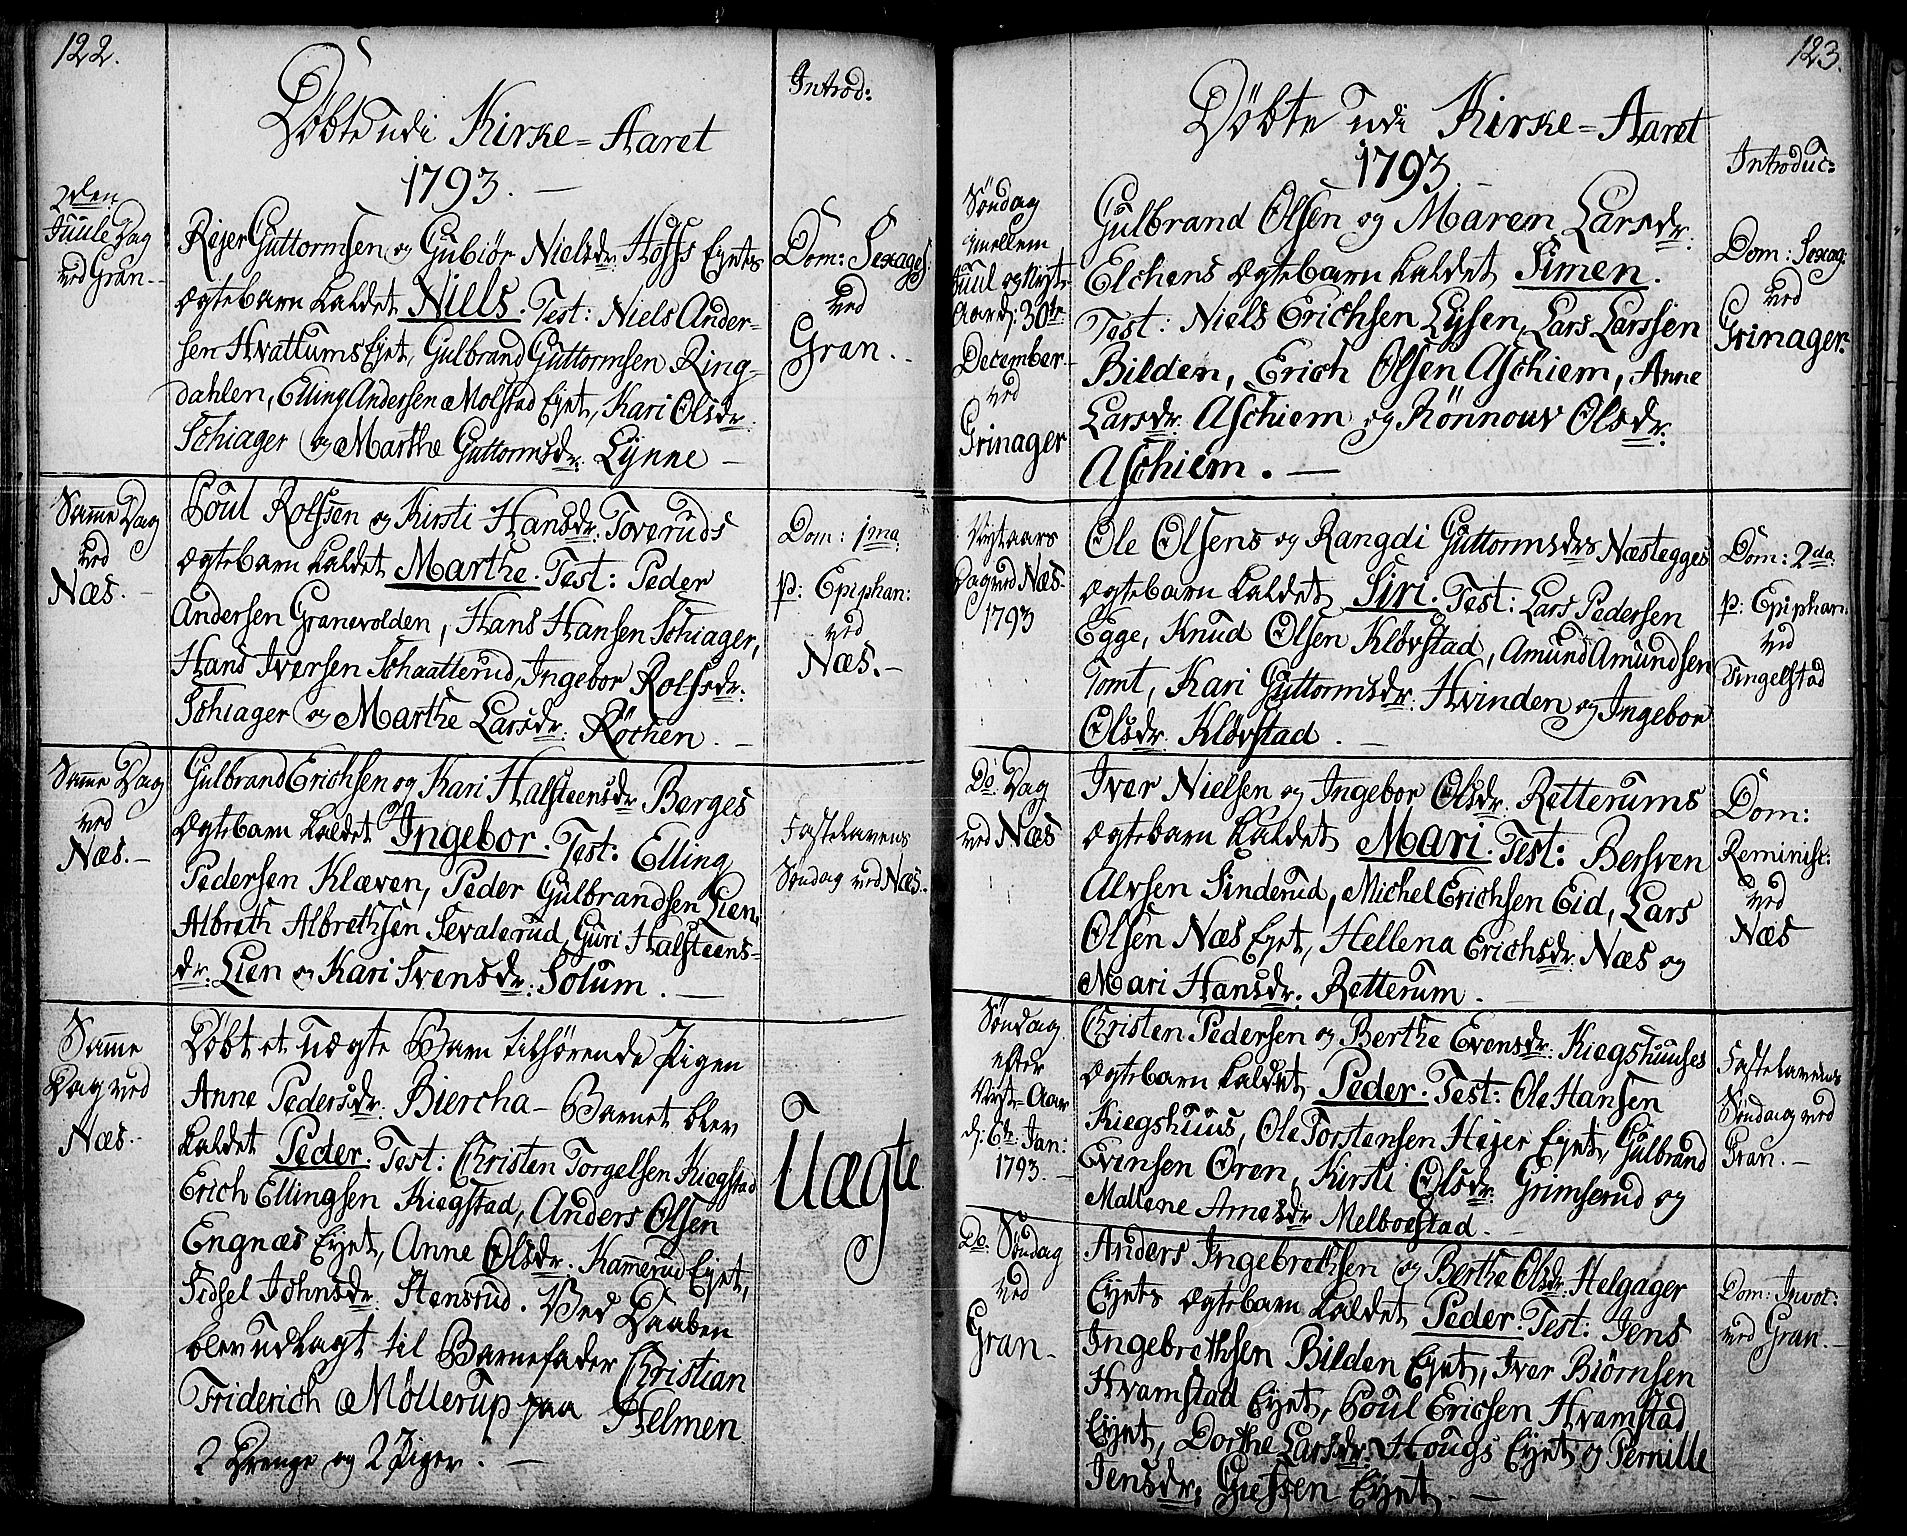 122.
Döbte udi Kirke=Aaret
1793. —
Introd:
2den
Juule Dag
ved Gran. —
Rejer Guttormsen og Gubiör Nielsdr: Hoffs Eyets
ægtebarn kaldet Niels. Test: Niels Ander=
sen Hvattums Eyet, Gulbrand Guttormsen Ring=
dahlen, Elling Andersen Molstad Eyet, Kari Olsdr:
Schiager og Marthe Guttormsdr: Lynne —
Dom: Sexages:
ved
Gran. —
Samme Dag
ved
Næs. —
Poul Rolfsen og Kirsti Hansdr: Toveruds
ægtebarn kaldet Marthe. Test: Peder
Andersen Granevolden, Hans Hansen Schiager,
Hans Iversen Schaatterud, Ingebor Rolfsdr:
Schiager og Marthe Larsdr: Röchen. —
Dom: 1ma
p: Epiphan:
ved
Næs. —
Samme Dag
ved
Næs. —
Gulbrand Erichsen og Kari Halsteensdr: Berges
ægtebarn kaldet Ingebor. Test: Elling
Pedersen Klæven, Peder Gulbrandsen Lien,
Albreth Albrethsen Sevalerud, Guri Halsteens=
dr: Lien og Kari Svensdr: Solum. —
Fastelavens
Søndag ved Næs. —
Samme
Dag ved
Næs. —
Döbt et uægte Barn tilhørende Pigen
Anne Pedersdr: Biercha — Barnet blev
kaldet Peder. Test: Christen Torgelsen Kiegstad
Erich Ellingsen Kiegstad, Anders Olsen
Engnæs Eyet, Anne Olsdr: Kammerud Eyet,
Sidsel Johnsdr: Stensrud. Ved Daaben
blev udlagt til Barnefader Christian
Friderich Möllerup paa Helmen
2 Drenge og 2 Piger. —
Uægte
123.
Döbte udi Kirke=Aaret
1793. —
Introduc:
Søndag
imellem
Juul og Nyt
Aar d: 30te
December
ved
Grinager
Gulbrand Olsen og Maren Larsdr:
Elchens ægtebarn kaldet Simen.
Test: Niels Erichsen Lysen, Lars Larssen
Bilden, Erich Olsen Aschiem, Anne
Larsdr: Aschiem og Rönnouv Olsdr:
Aschiem. —
Dom: Sexag:
ved
Grinager.
Nytaars
Dag ved Næs.
1793
Ole Olsens og Rangdi Guttormsdrs Næstegges
ægtebarn kaldet Siri. Test: Lars Pedersen
Egge, Knud Olsen Klövstad, Amund Amundsen
Tomt, Kari Guttormsdr: Hvinden og Ingebor
Olsdr: Klövstad. —
Dom: 2da
p: Epiphan:
ved
Tingelstad
Do Dag
ved Næs
Iver Nielsen og Ingebor Olsdr: Retterums
ægtebarn kaldet Mari. Test: Bersven
Alvsen Sinderud, Michel Erichsen Eid, Lars
Olsen Næs Eyet, Hellena Erichsdr: Næs og
Mari Hansdr: Retterum. —
Dom:
Reminisc:
ved
Næs
Søndag
efter
Nyt=Aar
d: 6te Jan:
1793. —
Christen Pedersen og Berthe Evensdr: Kiegshuuses
ægtebarn kaldet Peder. Test: Ole Hansen
Kiegshuus, Ole Torstensen Hejer Eyet, Gulbrand
Evensen Oren, Kirsti Olsdr: Grimserud og
Mallene Arnesdr: Melboestad. —
Fastelavens
Søndag ved
Gran. —
Do Søndag
ved
Gran. —
Anders Ingebrethsen og Berthe Olsdr: Helgager
Eyets ægtebarn kaldet Peder. Test: Jens
Ingebrethsen Bilden Eyet, Iver Biörnsen
Hvamstad Eyet, Poul Ericsen Hvamstad
Eyet, Dorthe Larsdr: Hougs Eyet og Pernille
Jensdr: Giefsen Eyet. —
Dom: Invoc:
ved Gran. —